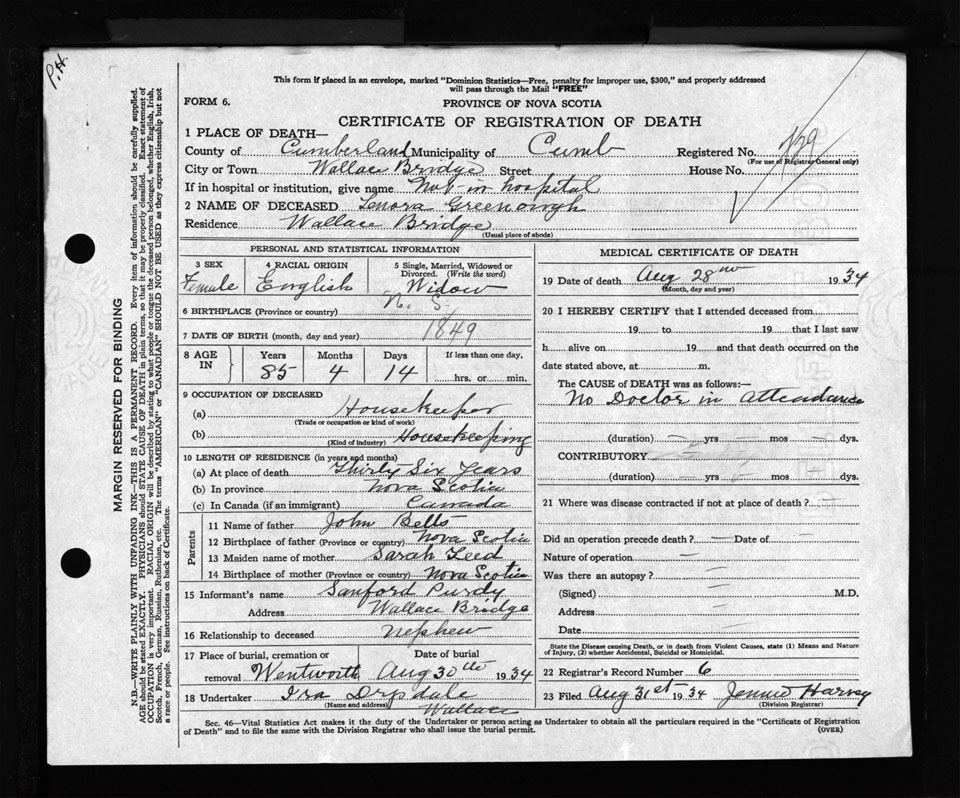 P.H.
This form if placed in an envelope, marked "Dominion Statistics—Free, penalty for improper use, $300," and properly addressed
will pass through the Mail "FREE"
FORM 6.
PROVINCE OF NOVA SCOTIA
CERTIFICATE OF REGISTRATION OF DEATH
1 PLACE OF DEATH—
County of Cumberland Municipality of Cumb Registered No.
(For use of Registrar General only)
City or Town Wallace Bridge Street House No.
If in hospital or institution, give name Not in hospital
2 NAME OF DECEASED Lenora Greenough
Residence Wallace Bridge
(Usual place of abode)
PERSONAL AND STATISTICAL INFORMATION
3 SEX Female
4 RACIAL ORIGIN English
5 Single, Married, Widowed or Divorced. (Write the word) Widow
6 BIRTHPLACE (Province or country) N. S.
7 DATE OF BIRTH (month, day and year) 1849
8 AGE IN Years 85 Months 4 Days 14 If less than one day, hrs. or min.
9 OCCUPATION OF DECEASED
(a) Housekeeper
(Trade or occupation or kind of work)
(b) Housekeeping
(Kind of industry)
10 LENGTH OF RESIDENCE (in years and months)
(a) At place of death Thirty Six Years
(b) In province Nova Scotia
(c) In Canada (if an immigrant) Canada
Parents
11 Name of father John Betts
12 Birthplace of father (Province or country) Nova Scotia
13 Maiden name of mother Sarah Teed
14 Birthplace of mother (Province or country) Nova Scotia
15 Informant's name Sanford Purdy
Address Wallace Bridge
16 Relationship to deceased Nephew
17 Place of burial, cremation or removal Wentworth
Date of burial Aug 30th 1934
18 Undertaker Ira Drysdale
(Name and address) Wallace
MEDICAL CERTIFICATE OF DEATH
19 Date of death Aug 28 1934
(Month, day and year)
20 I HEREBY CERTIFY that I attended deceased from
19 to 19 that I last saw
h alive on 19 and that death occurred on the
date stated above, at m.
The CAUSE of DEATH was as follows:—
No Doctor in attendance
(duration) — yrs — mos — dys.
CONTRIBUTORY
(duration) — yrs — mos — dys.
21 Where was disease contracted if not at place of death? —
Did an operation precede death? — Date of —
Nature of operation —
Was there an autopsy? —
(Signed) — M.D.
Address —
Date —
State the Disease causing Death, or in death from Violent Causes, state (1) Means and Nature
of Injury, (2) whether Accidental, Suicidal or Homicidal.
22 Registrar's Record Number 6
23 Filed Aug 31st 1934 Jennie Harvey
(Division Registrar)
Sec. 46—Vital Statistics Act makes it the duty of the Undertaker or person acting as Undertaker to obtain all the particulars required in the "Certificate of Registration
of Death" and to file the same with the Division Registrar who shall issue the burial permit.
(OVER)
MARGIN RESERVED FOR BINDING
N.B.—WRITE PLAINLY WITH UNFADING INK—THIS IS A PERMANENT RECORD. Every item of information should be carefully supplied.
AGE should be stated EXACTLY. PHYSICIANS should STATE CAUSE OF DEATH in plain terms, so that it may be properly classified. Exact statement of
OCCUPATION is very important. RACIAL ORIGIN will be described by stating to what people or tongue the deceased person belonged, whether English, Irish,
Scotch, French, German, Russian, Ruthenian, etc. The terms "AMERICAN" or "CANADIAN" SHOULD NOT BE USED as they express citizenship but not
a race or people. See instructions on back of Certificate.